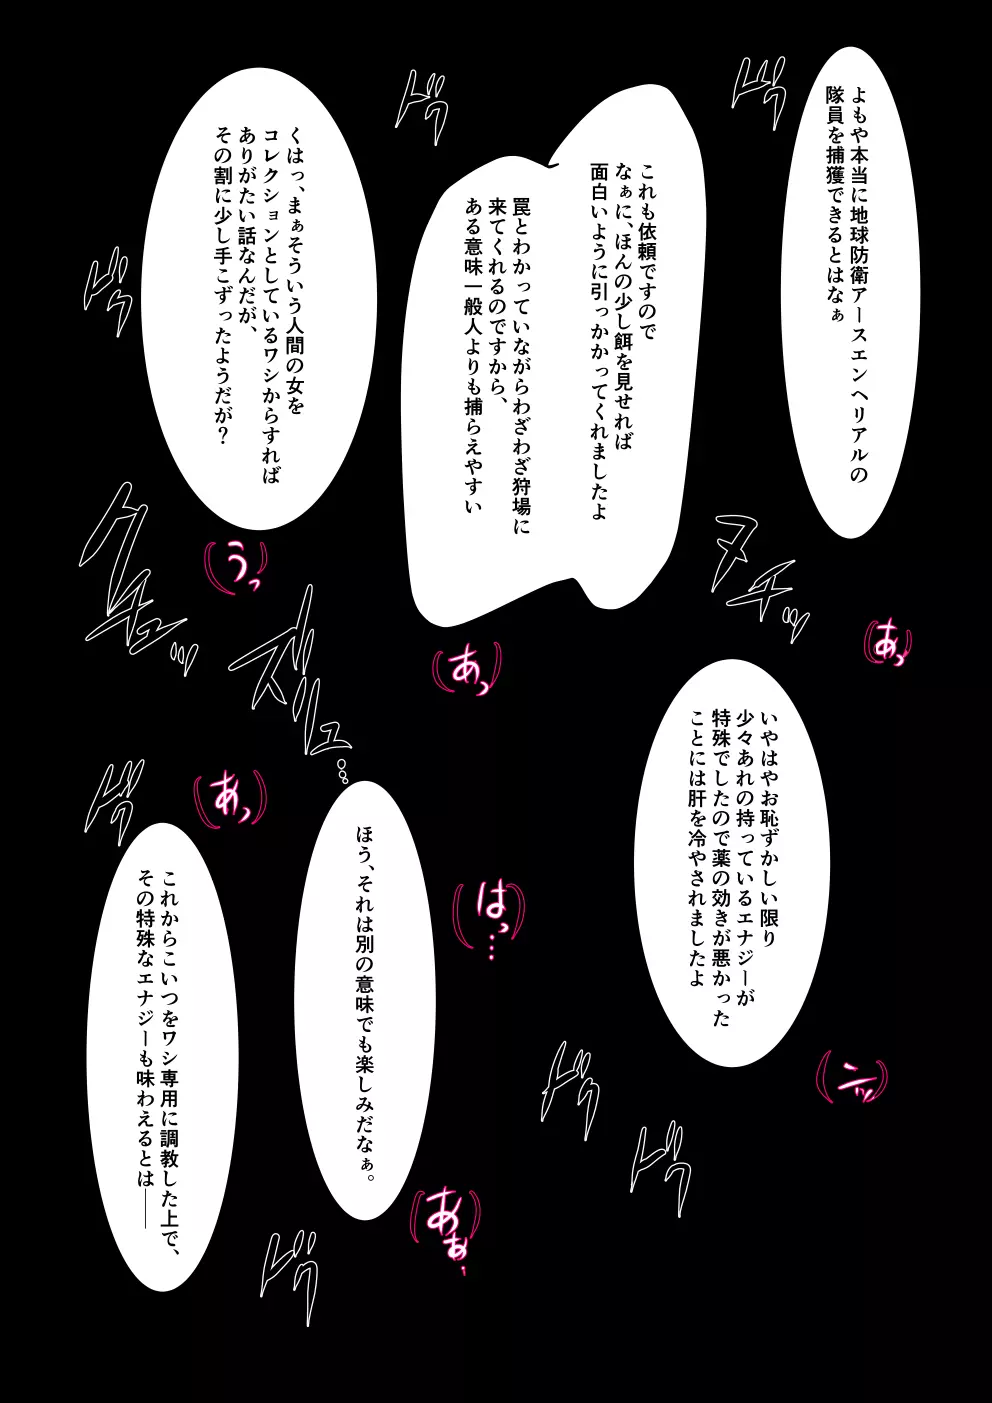 よもや本当に地球防衛アースエンヘリアルの
隊員を捕獲できるとはなぁ
ドヴ
これも依頼ですので
なぁに、ほんの少し餌を見せれば
面白いように引っかかってくれましたよ
罠とわかっていながらわざわざ狩場に
来てくれるのですから、
ある意味一般人よりも捕らえやすい
ドヴ
くはっ、まぁそういう人間の女を
コレクションとしているワシからすれば
ありがたい話なんだが、
その割に少し手こずったようだが？
ドヴ
ヌチッ
(あっ)
(あっ)
(うっ)
グチュッ
ズリュ…
いやはやお恥ずかしい限り
少々あれの持っているエナジーが
特殊でしたので薬の効きが悪かった
ことには肝を冷やされましたよ
(はっ…)
(あっ)
ドヴ
ほう、それは別の意味でも楽しみだなぁ。
これからこいつをワシ専用に調教した上で、
その特殊なエナジーも味わえるとは――
ドヴ
ドヴ
(あぁ…)
ドヴ